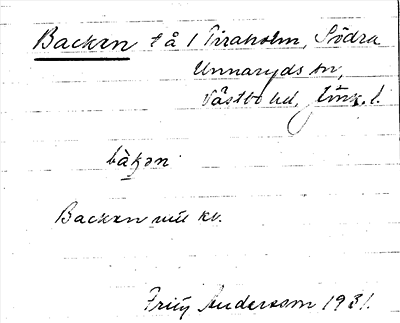 Backen t å 1 Piraholm, Södra
Unnaryds sn,
Västbo hd, Jönk. l.
bàkən
Backen mil kv.
Fritz Andersson 1931.